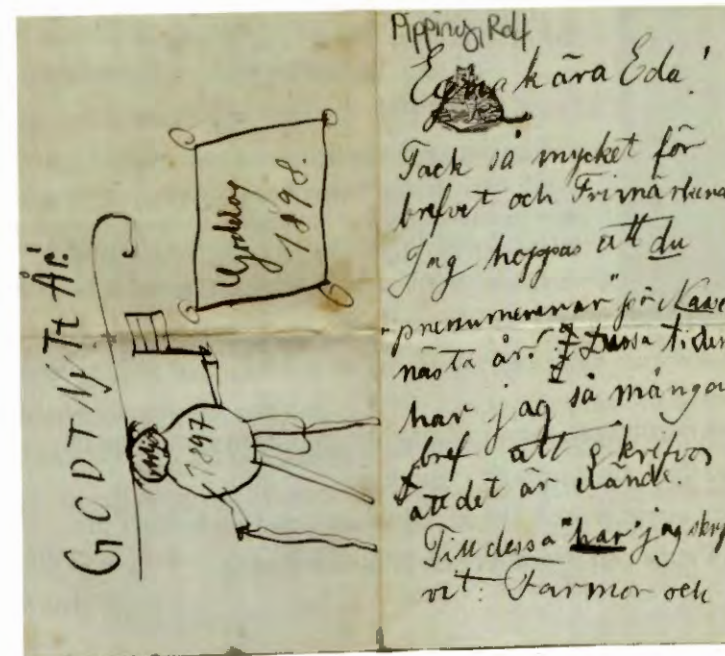 GODT NyTt ÅR!
1897
1898.
Pipping, Rolf
Egna kära Eda!
Tack så mycket för
brefvet och Frimärkena
Jag hoppas att du
"prenumererar" på
nästa år! Dessa tider
har jag så många
bref att skrifva
att det är elände.
Till dessa "har" jag skrif
vit: Farmor och